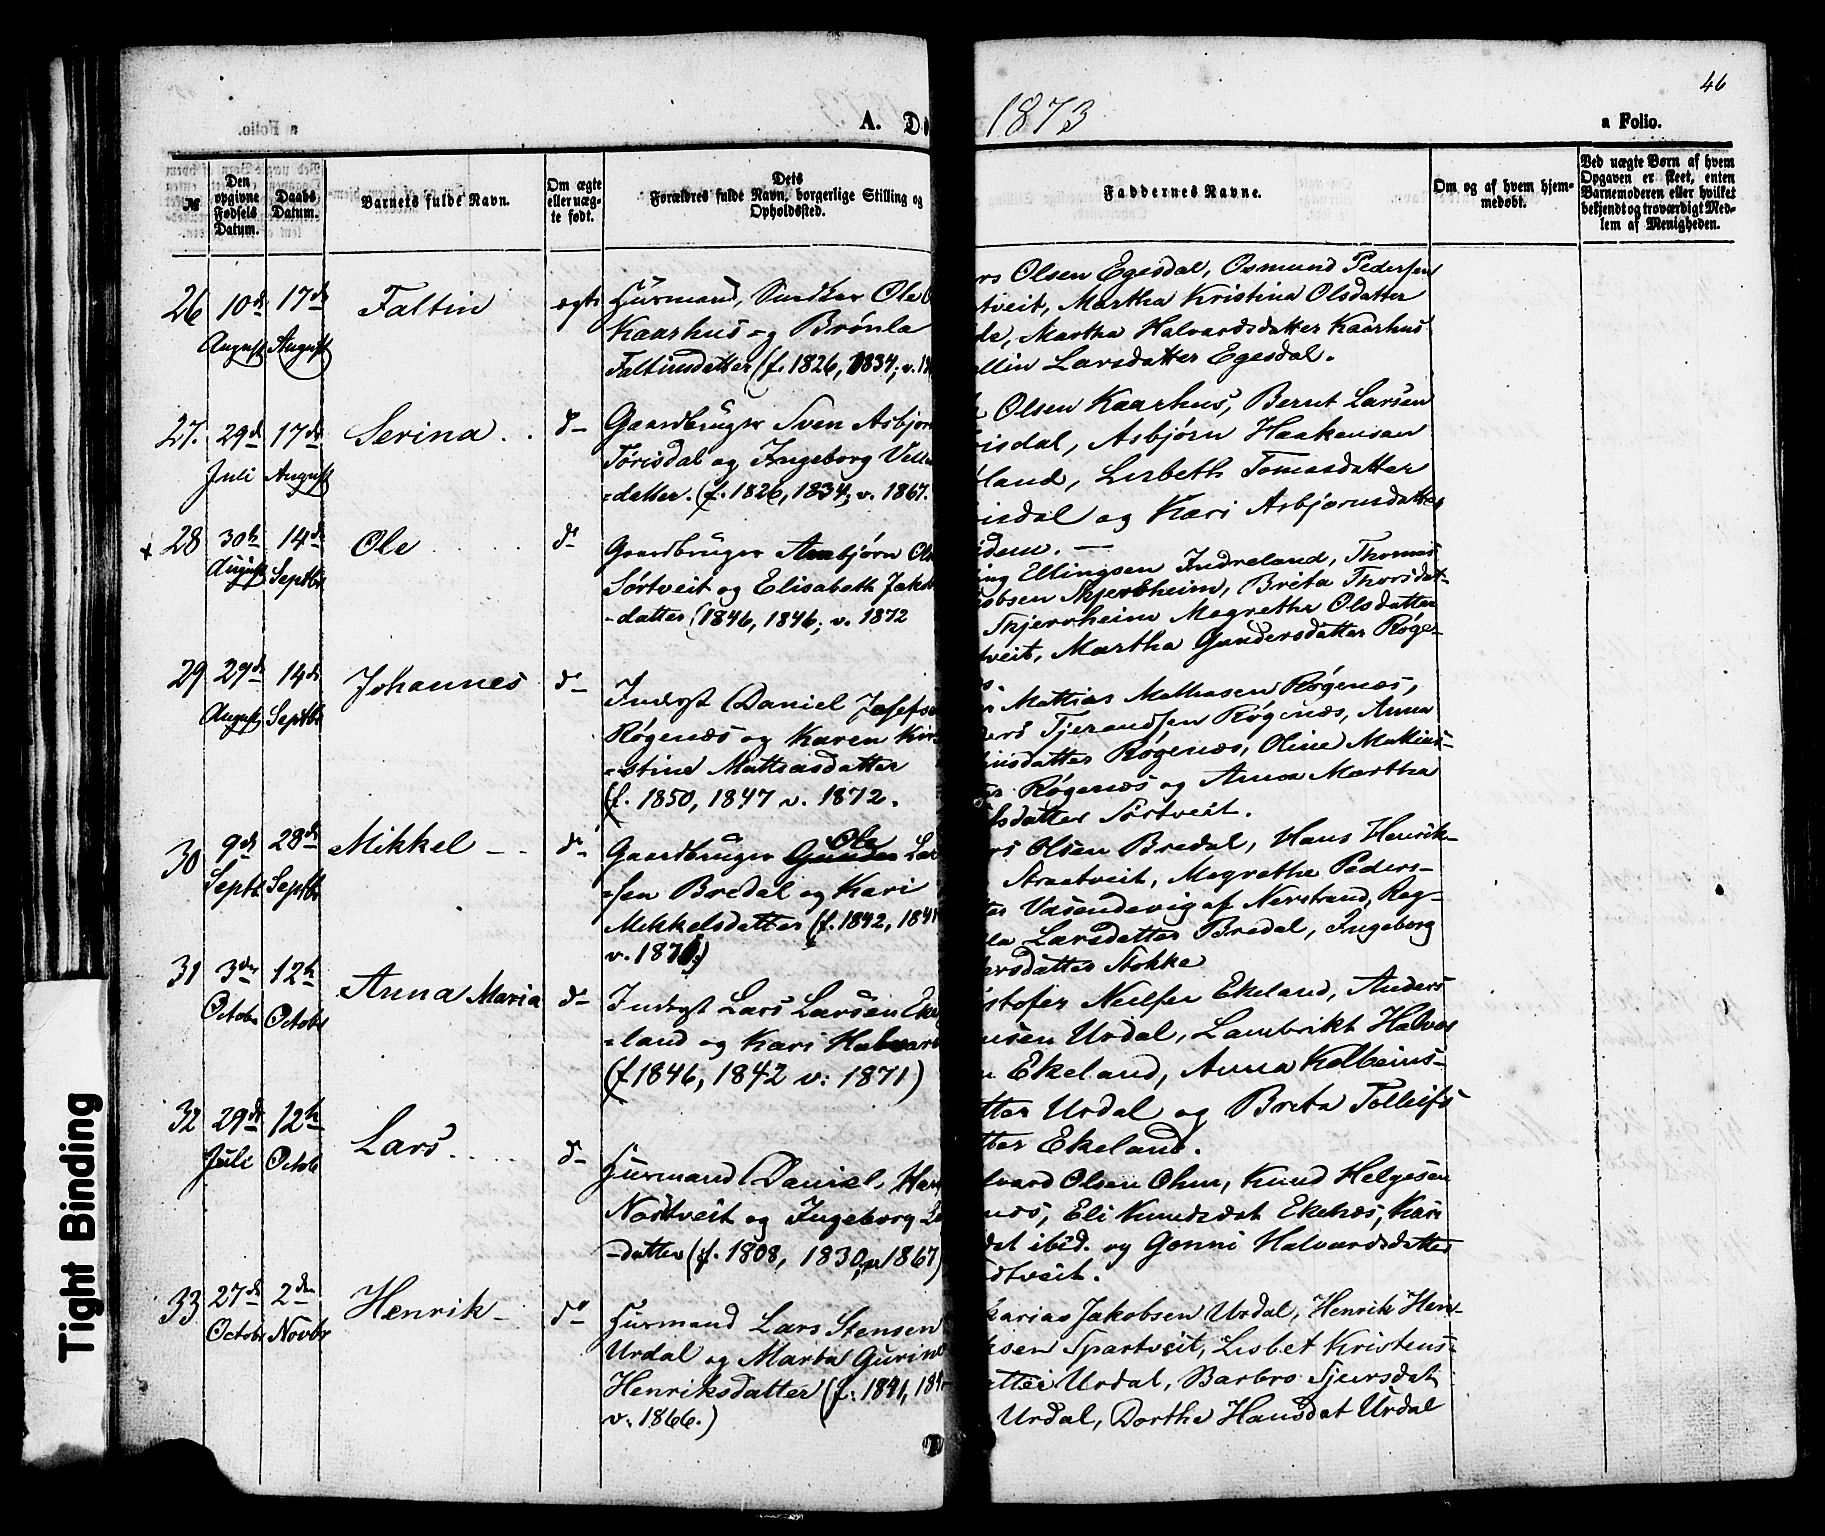 46
A. D
1873
a Folio.
№
Den opgivne Fødsels Datum.
Daabs Datum.
Barnets fulde Navn.
Om ægte eller uægte født.
Dets
Forældres fulde Navn, borgerlige Stilling og Opholdssted.
Faddernes Navne.
Om og af hvem hjemmedøbt.
Ved uægte Børn af hvem Opgaven er skeet, enten Barnemoderen eller hvilket bekjendt og troværdigt Medlem af Menigheden.
26
10de August
17de August
Faltin
ægte
Husmand, Snedker Ole
Kaarhus og Brønla
Faltinsdatter (f. 1826, 1834; v.
rs Olsen Egesdal, Osmund Pedersen
tveit, Martha Kristina Olsdatter
de, Martha Halvardsdatter Kaarhus
ellin Larsdatter Egesdal.
27.
29de Juli
17de August
Serina
do
Gaardbruger Sven Asbjørn
Tørisdal og Ingeborg Velle
=datter. (f. 1826, 1834; v. 1867.
Olsen Kaarhus, Bernt Larsen
risdal, Asbjørn Haakensen
land, Lisbeth Tomasdatter
risdal og Kari Asbjørnsdatter
dem. —
x 28
30te August
14de Septbr
Ole
do
Gaardbruger Asbjørn Ols
Sørtveit og Elisabeth Jakob
-datter (1846, 1846; v. 1872
ing Ellingsen Indreland, Thomas
obsen Skjerheim, Brita Thorsdat-
Skjerrheim Megrethe Olsdatter
tveit, Martha Gundersdatter Røge-
29
27de August
14de Septbr
Johannes
do
Inderst Daniel Josefs
Røgenæs og Karen Kir-
=stine Mathiasdatter
(f. 1850, 1847 v. 1872.
Mathias Mathiasen Røgenæs,
ders Tjerandsen Røgenæs, Anna
insdatter Røgenæs, Oline Mathias-
er Røgenæs og Anna Martha
lsdatter Sørtveit.
30
9de Septbr
28de Septbr
Mikkel
do
Ole
Gaardbruger Gunder Lar
=sen Bredal og Kari
Mikkelsdatter (f. 1842, 184
v. 1871)
rs Olsen Bredal, Hans Henrik-
Straatveit, Megrethe Peders-
ter Vasendevig af Nerstrand, Rag-
la Larsdatter Bredal, Ingeborg
dersdatter Stokke
31
3die Octobr
12te Octobr
Anna Maria
do
Inderst Lars Larsen Eke
=land og Kari Halvard
(f 1846, 1842 v: 1871)
istofer Neilsen Ekeland, Anders
nsen Urdal, Lambrikt Halvor
n Ekeland, Anna Kolbeins-
tter Urdal og Brita Tolleifs
tter Ekeland.
32
29de Juli
12te Octob
Lars
do
Husmand Daniel Han
Nordtveit og Ingeborg La
-datter (f. 1808, 1830, v 1867)
lvard Olsen Ohm, Knud Helgesen
næs, Eli Knudsdat Ekenæs, Kari
dat ibid. og Gonni Halvardsdatter
dtveit.
33
27de Octobr
2den Novbr
Henrik
do
Husmand Lars Stensen
Urdal og Marta Gurine
Henriksdatter (f: 1841, 184
v. 1866.)
karias Jakobsen Urdal, Henrik Hen-
ksen Spartveit, Lisbet Kristens-
atter Urdal, Barbro Sjursdat
Urdal, Dorthe Hansdat Urdal
Tight Binding